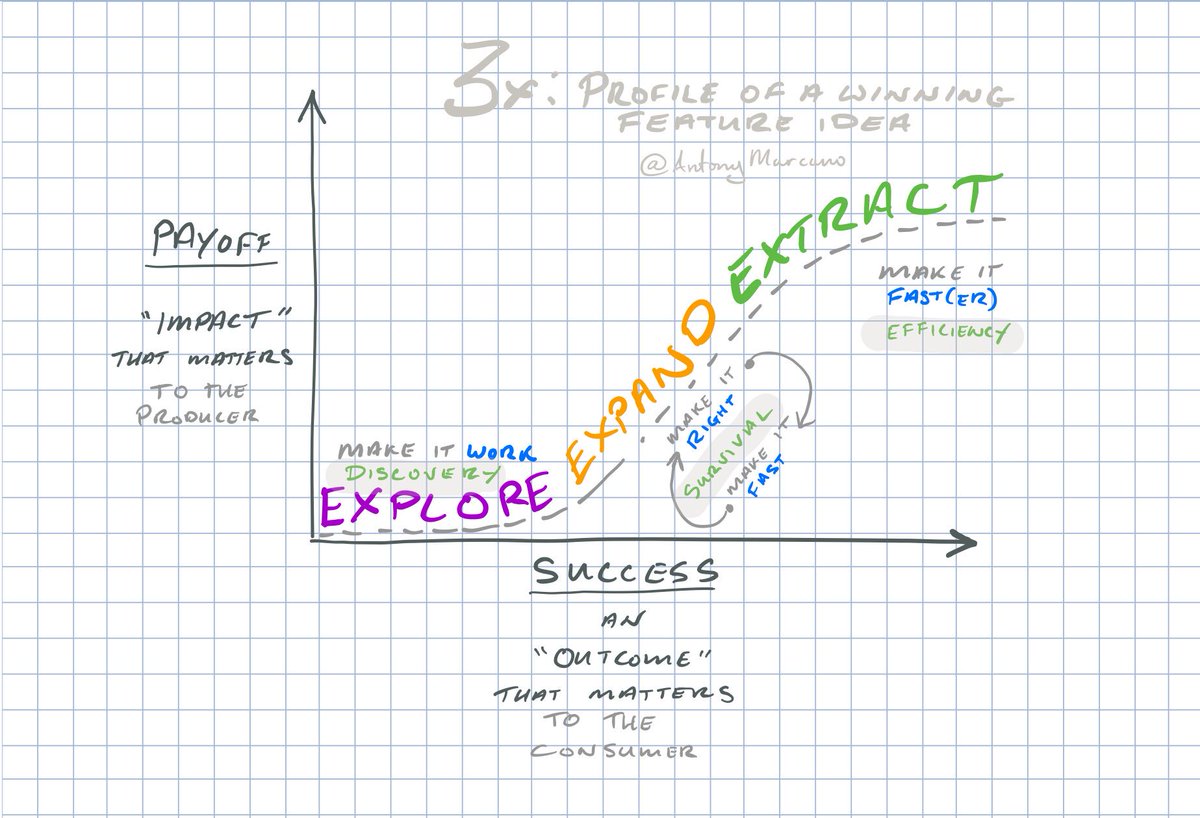 3x: PROFILE OF A WINNING
FEATURE IDEA
@AntonyMarcano
PAYOFF
"IMPACT"
THAT MATTERS
TO THE
PRODUCER
MAKE IT WORK
DISCOVERY
EXPLORE
EXPAND
MAKE IT
RIGHT
SURVIVAL
MAKE IT
FAST
EXTRACT
MAKE IT
FAST(ER)
EFFICIENCY
SUCCESS
AN
"OUTCOME"
THAT MATTERS
TO THE
CONSUMER